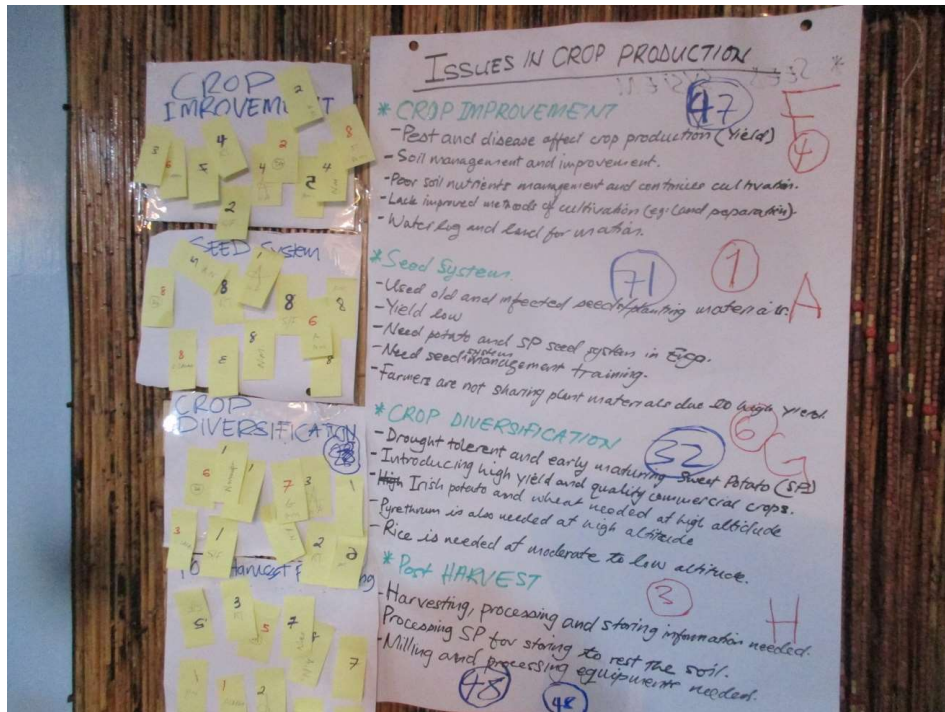 CROP
IMROVEMENT
2
3
6
5
4
4
2
4
8
5
2
SEED System
8
8
8
8
6
8
3
8
CROP
DIVERSIFICATION
6
1
1
7
3
1
3
1
2
2
Harvest
5
3
5
7
7
1
2
ISSUES IN CROP PRODUCTION
* CROP IMPROVEMENT
47
F
4
- Pest and disease affect crop production (Yield)
- Soil management and improvement.
- Poor soil nutrients management and continues cultivation.
- Lack improved methods of cultivation (eg: land preparation).
- Water log and land for mation.
* Seed System
71
1
A
- Used old and infected seed/planting materials.
- Yield low
- Need potato and SP seed system in Eiga.
- Need seed system management training.
- Farmers are not sharing plant materials due to high yield.
* CROP DIVERSIFICATION
32
6
G
- Drought tolerent and early maturing Sweet Potato (SP)
- Introducing high yield and quality commercial crops.
- High Irish potato and wheat needed at high altidude
- Pyrethrum is also needed at high altitude
- Rice is needed at moderate to low altitude.
* Post HARVEST
3
H
- Harvesting, processing and storing information needed.
Processing SP for storing to rest the soil.
- Milling and processing equipments needed.
48
48